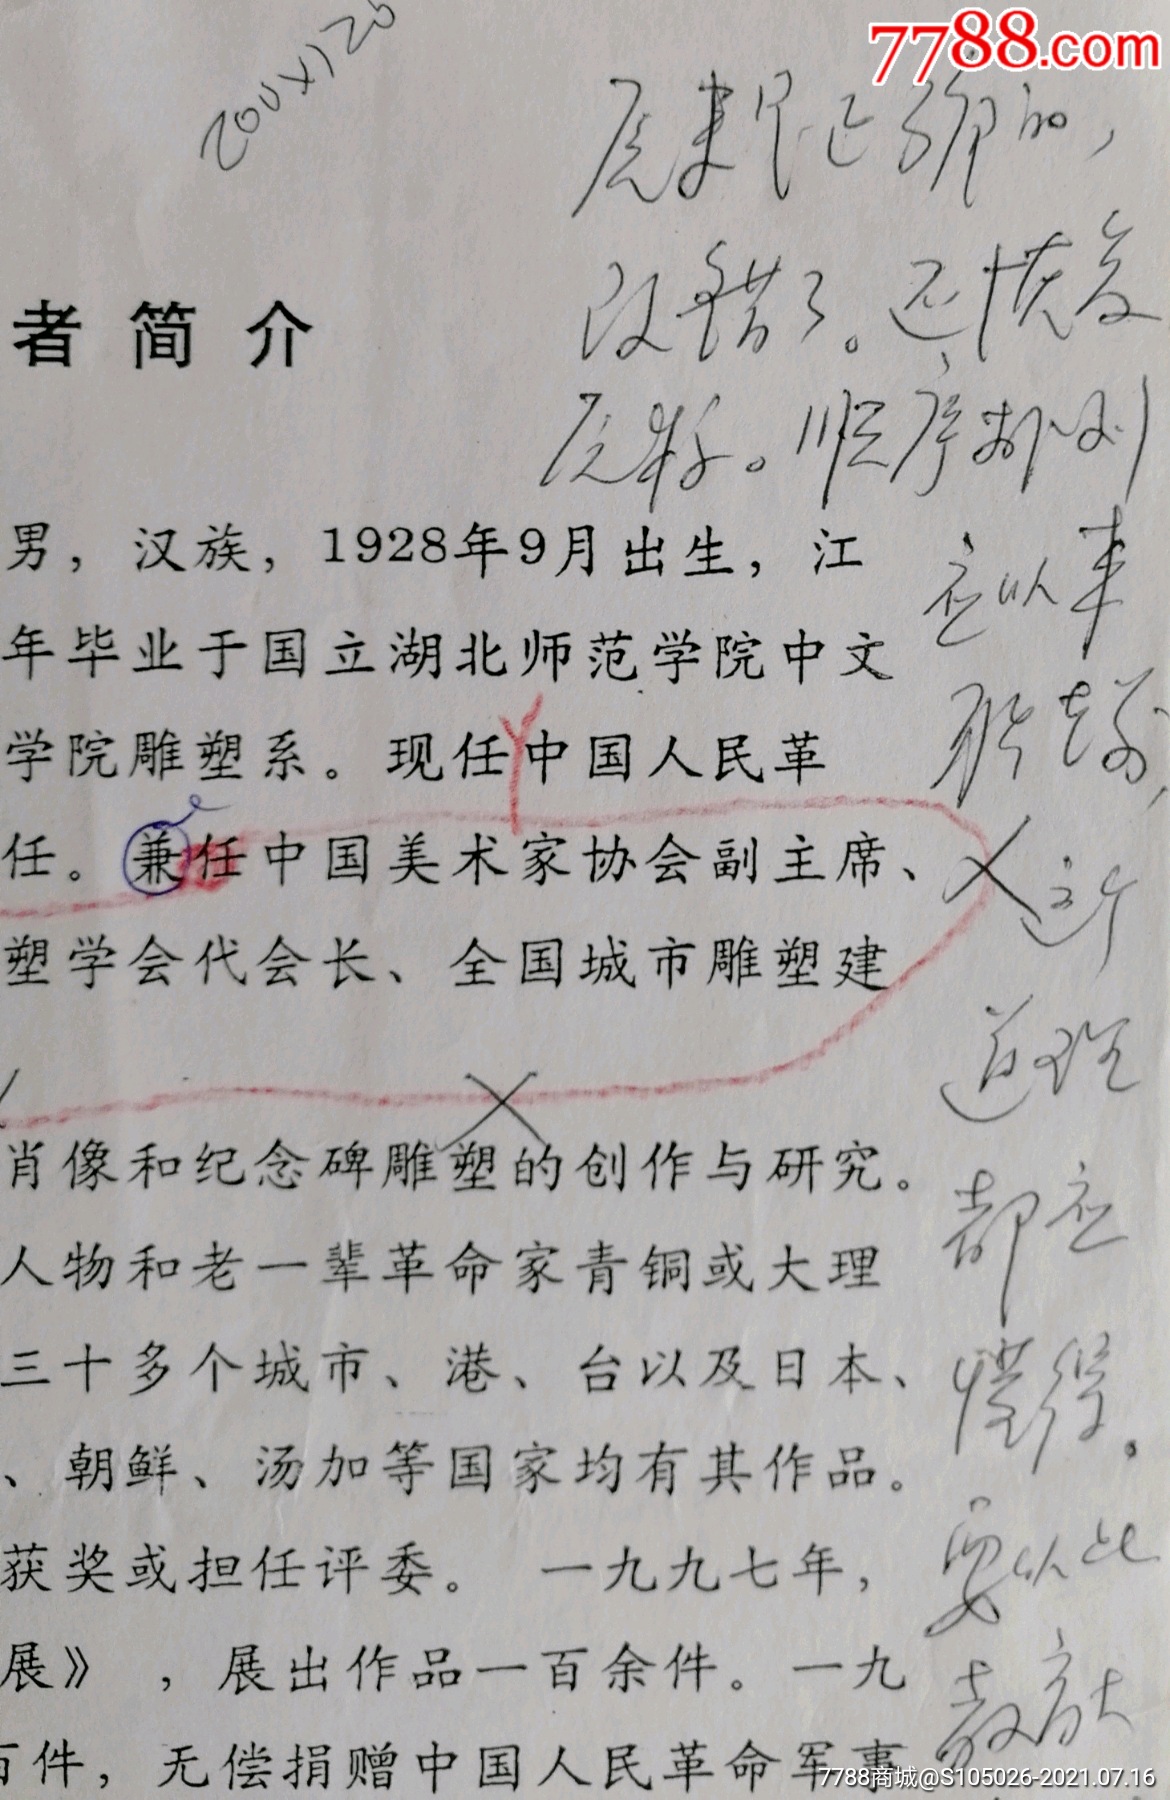 7788.com
200×120
原来是正确的，
改错了。还恢复
者简介
原样。顺序排列
男，汉族，1928年9月出生，江
应以本
年毕业于国立湖北师范学院中文
学院雕塑系。现任中国人民革
任。兼任中国美术家协会副主席、
这个
塑学会代会长、全国城市雕塑建
道理
肖像和纪念碑雕塑的创作与研究。
都应
人物和老一辈革命家青铜或大理
三十多个城市、港、台以及日本、
懂得。
、朝鲜、汤加等国家均有其作品。
获奖或担任评委。 一九九七年，
要以此
展》，展出作品一百余件。一九
百件，无偿捐赠中国人民革命军事
7788商城@S105026-2021.07.16